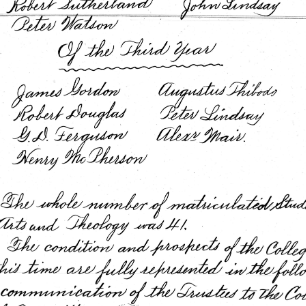 Robert Sutherland John Lindsay
Peter Watson
Of the Third Year
James Gordon Augustus Thibodo
Robert Douglas Peter Lindsay
G.D. Ferguson Alexr Mair.
Henry McPherson
The whole number of matriculated Stud
Arts and Theology was 41.
The condition and prospects of the Colleg
his time are fully represented in the follo
communication of the Trustees to the Co